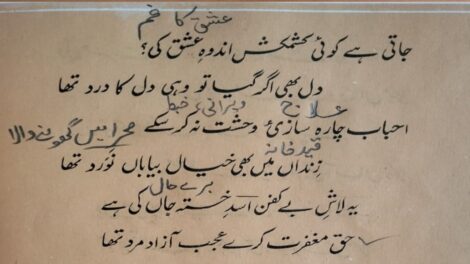 عشق کا غم
جاتی ہے کوئی کشمکش اندوہِ عشق کی؟
دل بھی اگر گیا تو وہی دل کا درد تھا
علاج ویرانی، خبط
احباب چارہ سازیٔ وحشت نہ کر سکے
صحرا میں گھومنے والا
قید خانہ
زنداں میں بھی خیال بیاباں نَورد تھا
برے حال
یہ لاشِ بے کفن اسدِ خستہ جاں کی ہے
حق مغفرت کرے عجب آزاد مرد تھا